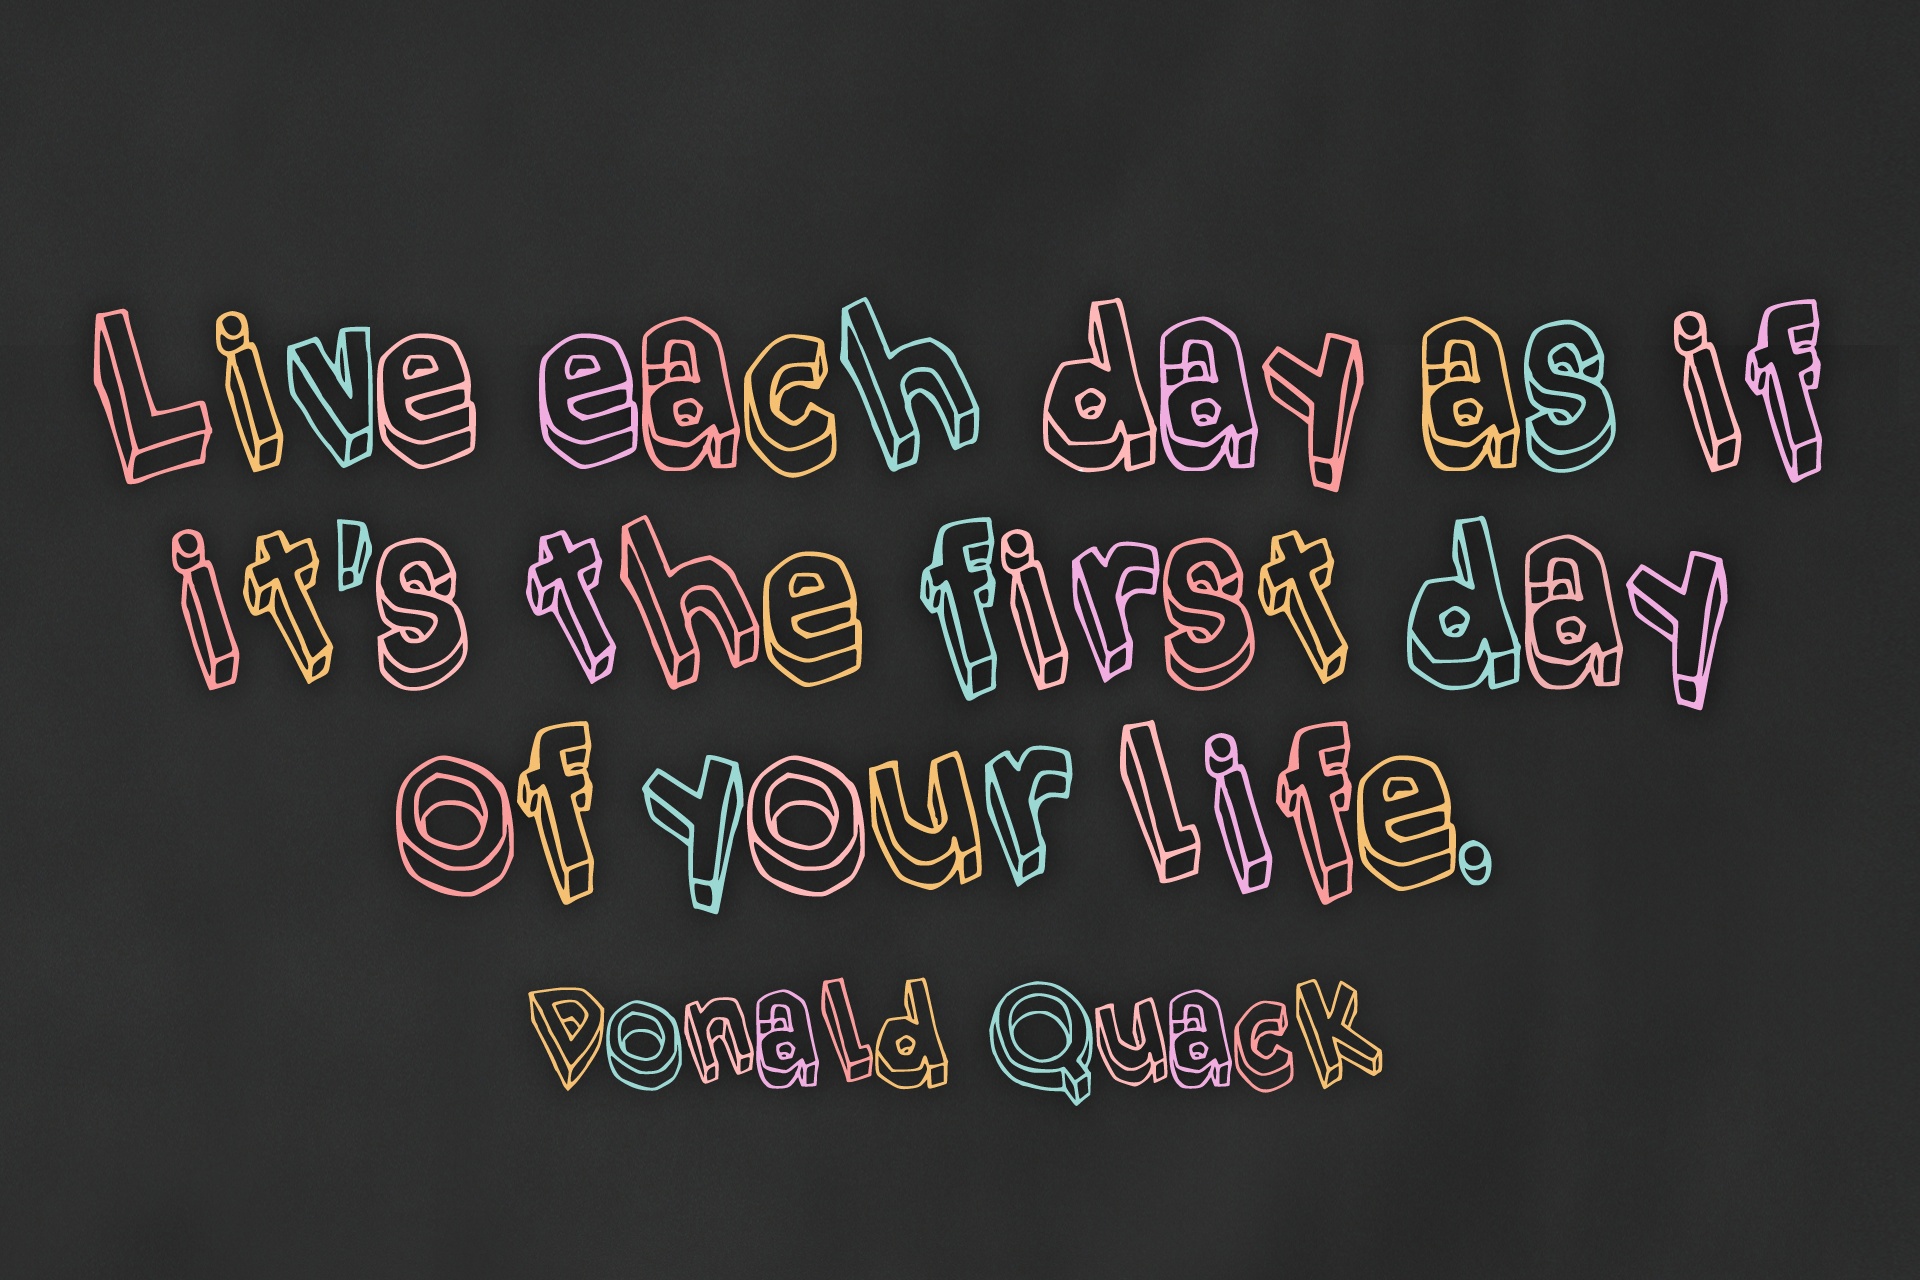 Live each day as if
it's the first day
of your life.
Donald Quack